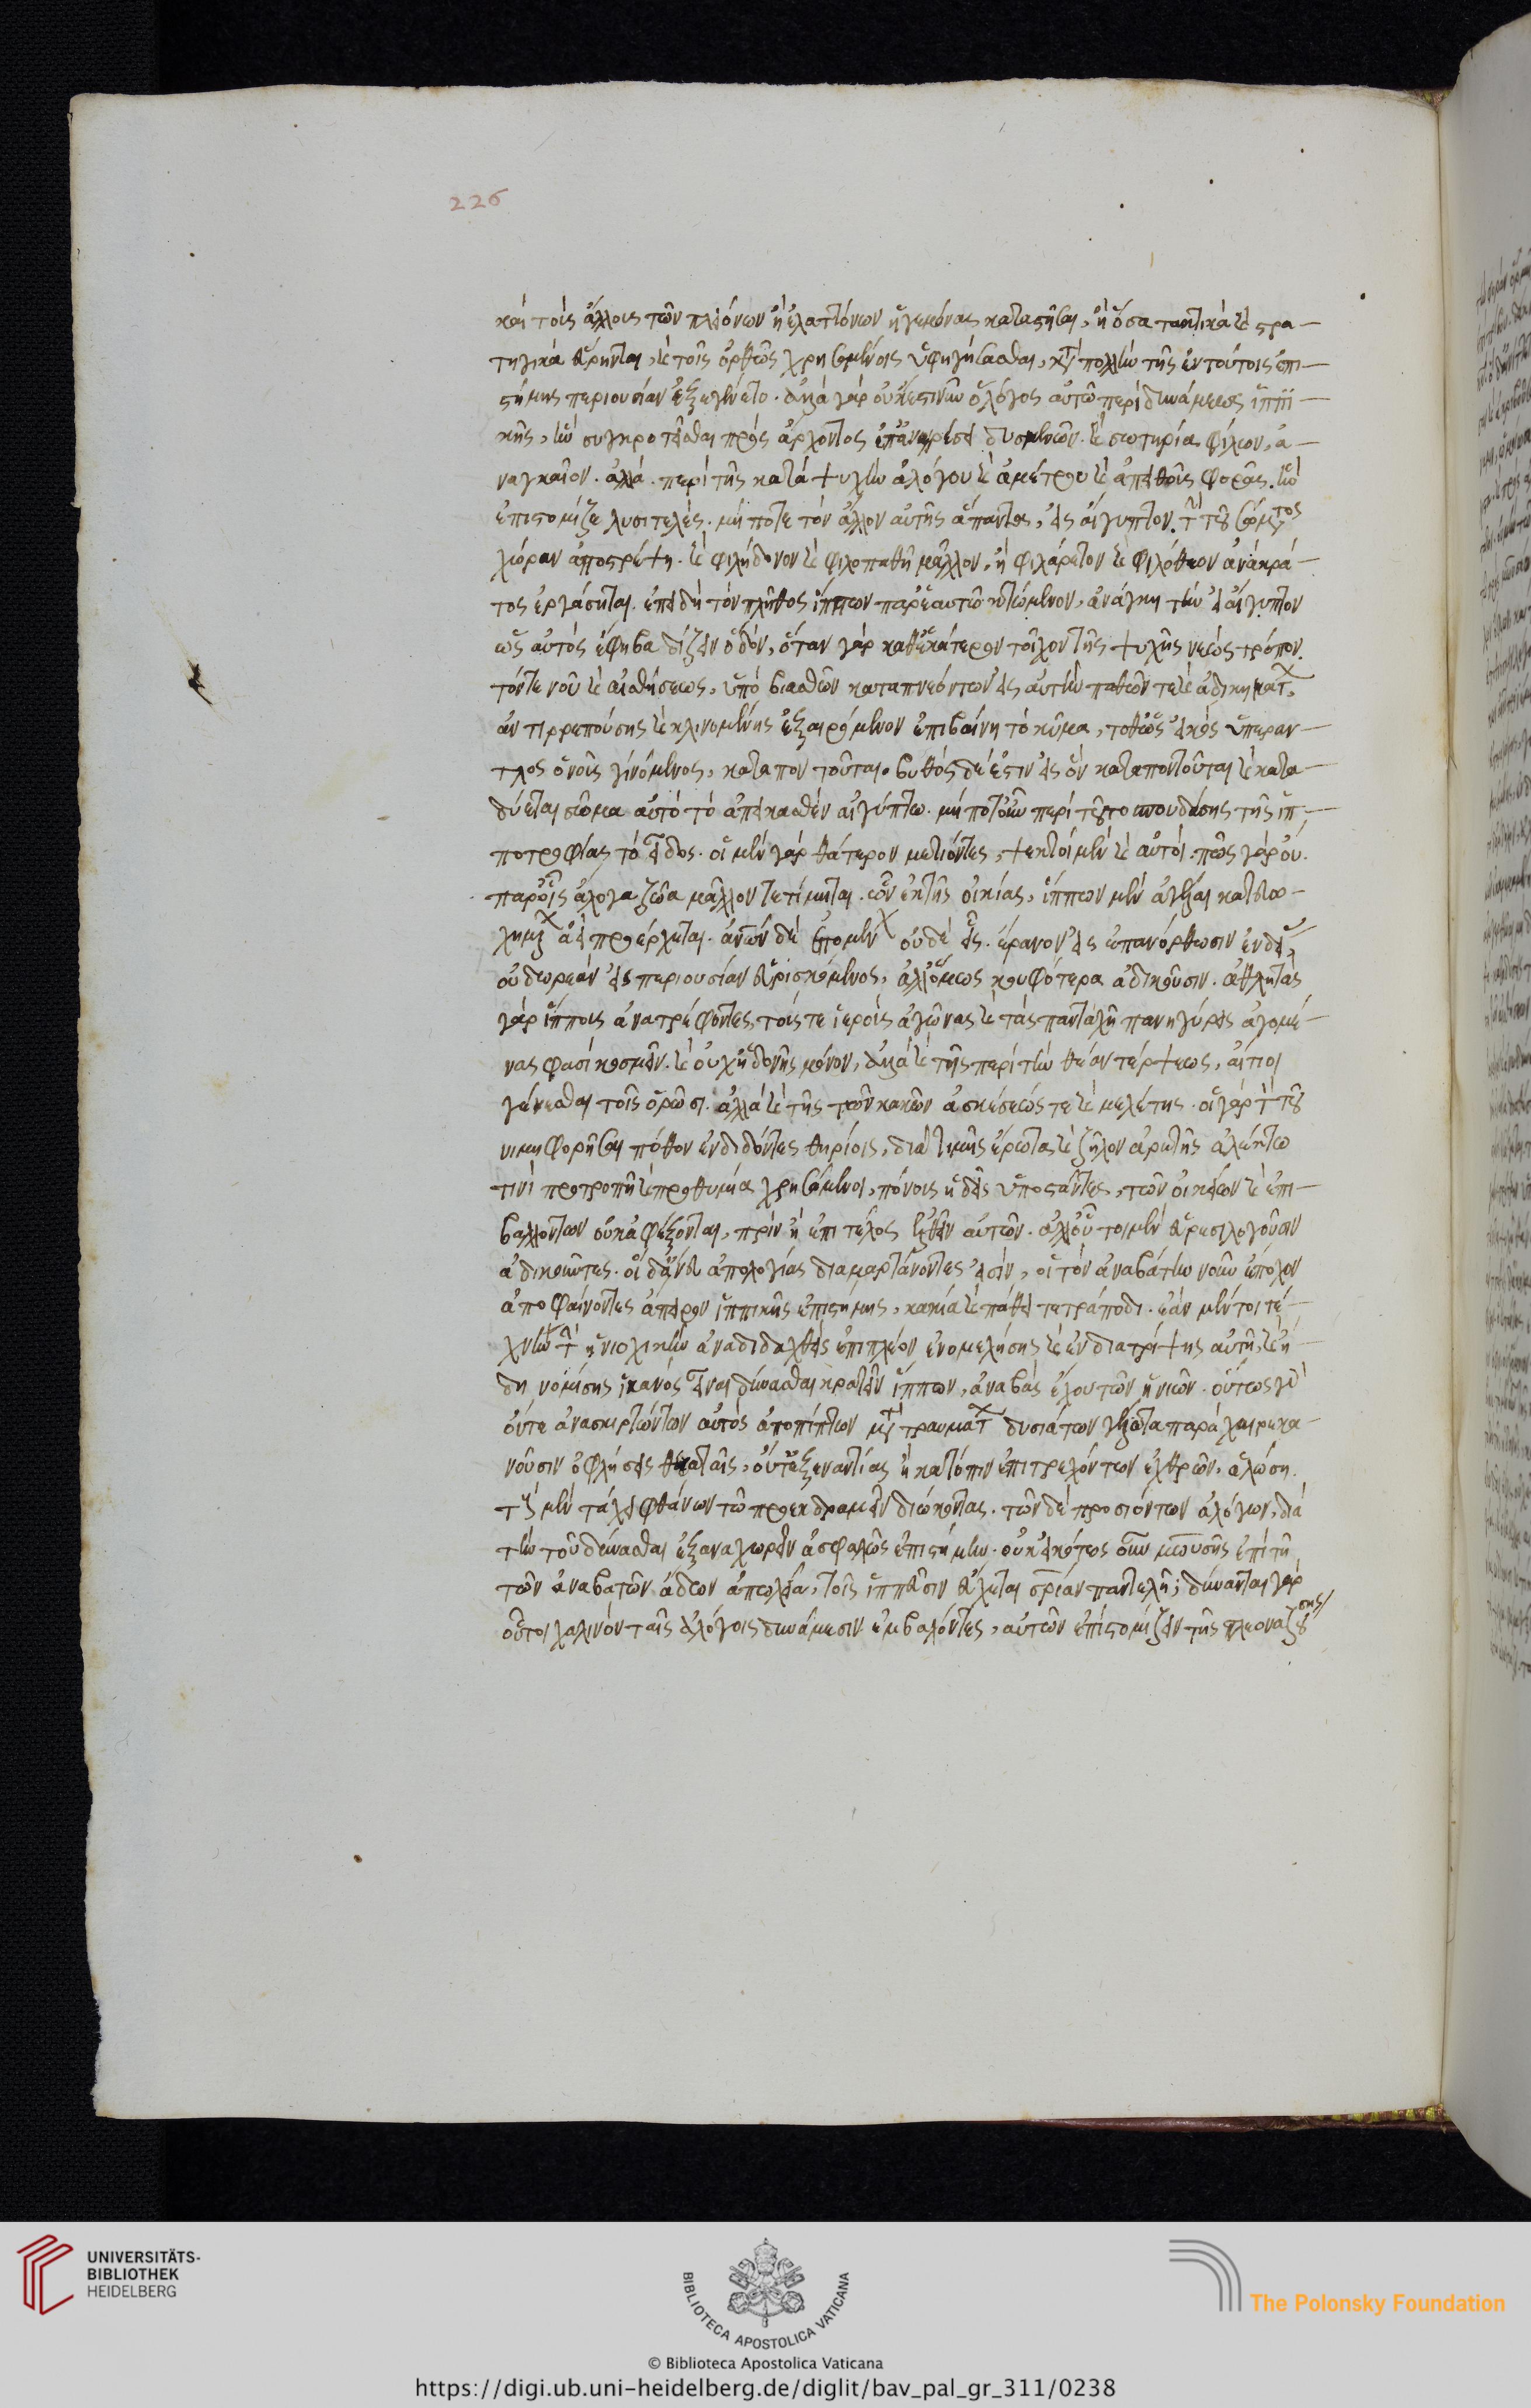 καὶ τοῖς ἄλλοις τῶν πλειόνων ἢ ἐλαττόνων ἡγεμόνας καταστῆσαι, ἢ ὅσα τακτικὰ καὶ στρα-
τηγικὰ εὕρηται, καὶ τοῖς ὀρθῶς χρησομένοις ὑφηγήσασθαι, κατὰ πολλὴν τῆς ἐν τούτοις ἐπι-
στήμης περιουσίαν ἐξεγένετο. ἀλλὰ γὰρ οὐκ ἔστι νῦν ὁ λόγος αὐτῷ περὶ δυνάμεως ἱππι-
κῆς, ἣν συγκροτεῖσθαι πρὸς ἄρχοντος ἐπ' ἀναιρέσει δυσμενῶν. καὶ σωτηρίᾳ φίλων, ἀ-
ναγκαῖον. ἀλλὰ. περὶ τῆς κατὰ ψυχὴν ἀλόγου καὶ ἀμέτρου καὶ ἀπειθοῦς φορᾶς. ἣν
ἐπιστομίζειν λυσιτελές. μή ποτε τὸν ἄλλον αὐτῆς ἅπαντα, εἰς αἴγυπτον. τὴν τοῦ σώματος
χώραν ἀποστρέψῃ. καὶ φιλήδονον καὶ φιλοπαθῆ μᾶλλον, ἢ φιλάρετον καὶ φιλόθεον ἀνὰ κρά-
τος ἐργάσηται. ἐπειδὴ τὸν πλῆθος ἵππων παρ' ἑαυτῷ κτώμενον, ἀνάγκη τὴν εἰς αἴγυπτον
ὡς αὐτὸς ἔφη βαδίζειν ὁδόν, ὅταν γὰρ καθ' ἑκάτερον τοῖχον τῆς ψυχῆς νεὼς τρόπον.
τόν τε νοῦ καὶ αἰσθήσεως, ὑπὸ βιασθῶν καταπνεόντων εἰς αὐτὴν παθῶν τε καὶ ἀδικημάτων,
ἀντιρρεπούσης καὶ κλινομένης ἐξαιρόμενον ἐπιβαίνῃ τὸ κῦμα, τόθ' ὡς εἰκὸς ὑπέραν-
τλος ὁ νοῦς γινόμενος, καταποντοῦται. βυθὸς δέ ἐστιν εἰς ὃν καταποντοῦται καὶ κατα-
δύεται σῶμα αὐτὸ τὸ ἀπεικασθὲν αἰγύπτῳ. μή ποτ' οὖν περὶ τοῦτο σπουδάσῃς τῆς ἱπ-
ποτροφίας τὸ εἶδος. οἱ μὲν γὰρ θάτερον μετιόντες, ψεκτοὶ μὲν καὶ αὐτοί. πῶς γὰρ οὔ.
παρ' οἷς ἄλογα ζῶα μᾶλλον τετίμηται. ὧν ἐκ τῆς οἰκίας, ἵππων μὲν ἀγέλαι κατευω-
χημέναι ἀεὶ προέρχεται. ἀνθρώπων δὲ ἑπομένων οὐδὲ εἷς. ἔρανον εἰς ἐπανόρθωσιν ἐνδείας,
οὐ δωρεὰν εἰς περιουσίαν εὑρισκόμενος, ἀλλ' ὅμως κουφότερα ἀδικοῦσιν. ἀθλητὰς
γὰρ ἵππους ἀνατρέφοντες, τούς τε ἱεροὺς ἀγῶνας καὶ τὰς πανταχῆ πανηγύρεις ἀγομέ-
νας φασὶ κοσμεῖν. καὶ οὐχ ἡδονῆς μόνον, ἀλλὰ καὶ τῆς περὶ τὴν θέαν τέρψεως, αἴτιοι
γίνεσθαι τοῖς ὁρῶσι. ἀλλὰ καὶ τῆς τῶν κακῶν ἀσκήσεώς τε καὶ μελέτης. οἱ γὰρ τὸν τοῦ
νικηφορῆσαι πόθον ἐνδιδόντες θηρίοις, διὰ τιμῆς ἔρωτα καὶ ζῆλον ἀρετῆς ἀλέκτῳ
τινὶ προτροπῇ καὶ προθυμίᾳ χρησάμενοι, πόνους ἡδεῖς ὑποστάντες, τῶν οἰκείων καὶ ἐπι-
βαλλόντων οὐκ ἀφέξονται, πρὶν ἢ ἐπὶ τέλος ἐλθεῖν αὐτῶν. ἀλλ' οὗτοι μὲν εὑρεσιλογοῦσιν
ἀδικοῦντες. οἱ δ' ἄνευ ἀπολογίας διαμαρτάνοντες εἰσίν, οἳ τὸν ἀναβάτην νοῦν ἔποχον
ἀποφαίνοντες ἄπειρον ἱππικῆς ἐπιστήμης, κακίᾳ καὶ πάθει τετράποδι. ἐὰν μέντοι τέ-
χνην τὴν ἡνιοχικὴν ἀναδιδαχθεὶς ἐπιπλέον ἐνομιλήσῃς καὶ ἐνδιατρίψῃς αὐτῇ, καὶ ἤ-
δη νομίσῃς ἱκανὸς εἶναι δύνασθαι κρατεῖν ἵππων, ἀναβὰς ἔχου τῶν ἡνιῶν. οὕτως γὰρ
οὔτε ἀνασκιρτώντων αὐτὸς ἀποπίπτων μετὰ τραυμάτων δυσιάτων γέλωτα παρὰ χαιρεκα-
κοῦσιν ὀφλήσεις θεαταῖς, οὔτ' ἐξ ἐναντίας ἢ κατόπιν ἐπιτρεχόντων ἐχθρῶν, ἁλώσῃ.
τοὺς μὲν τάχει φθάνων τῷ προεκδραμεῖν διώκοντας. τῶν δὲ προσιόντων ἀλόγων, διὰ
τὴν τοῦ δύνασθαι ἐξαναχωρεῖν ἀσφαλῶς ἐπιστήμην. οὐκ εἰκότως οὖν μωυσῆς ἐπὶ τῇ
τῶν ἀναβατῶν ᾄδων ἀπωλείᾳ, τοῖς ἱππεῦσιν εὔχεται σωτηρίαν παντελῆ; δύνανται γὰρ
οὗτοι χαλινὸν ταῖς ἀλόγοις δυνάμεσιν ἐμβαλόντες, αὐτῶν ἐπιστομίζειν τῆς πλεοναζούσης
226
UNIVERSITÄTS-
BIBLIOTHEK
HEIDELBERG
BIBLIOTECA APOSTOLICA VATICANA
The Polonsky Foundation
© Biblioteca Apostolica Vaticana
https://digi.ub.uni-heidelberg.de/diglit/bav_pal_gr_311/0238